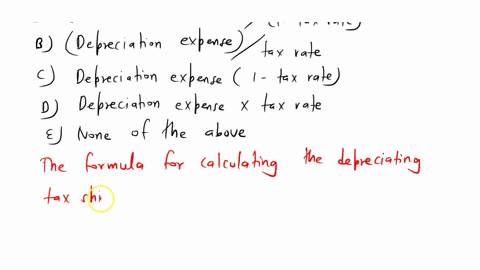 (1 - tax rate)
B) (Depreciation expense) / tax rate
C) Depreciation expense (1 - tax rate)
D) Depreciation expense x tax rate
E) None of the above
The formula for calculating the depreciating
tax shi